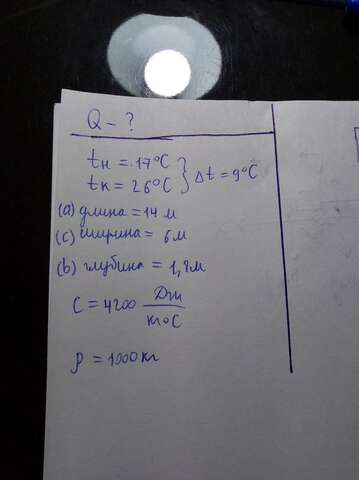 Q – ?
tн = 17°C
tк = 26°C } Δt = 9°C
(a) длина = 14 м
(c) ширина = 6 м
(b) глубина = 1,8м
C = 4200 Дж/кг°C
ρ = 1000 кг